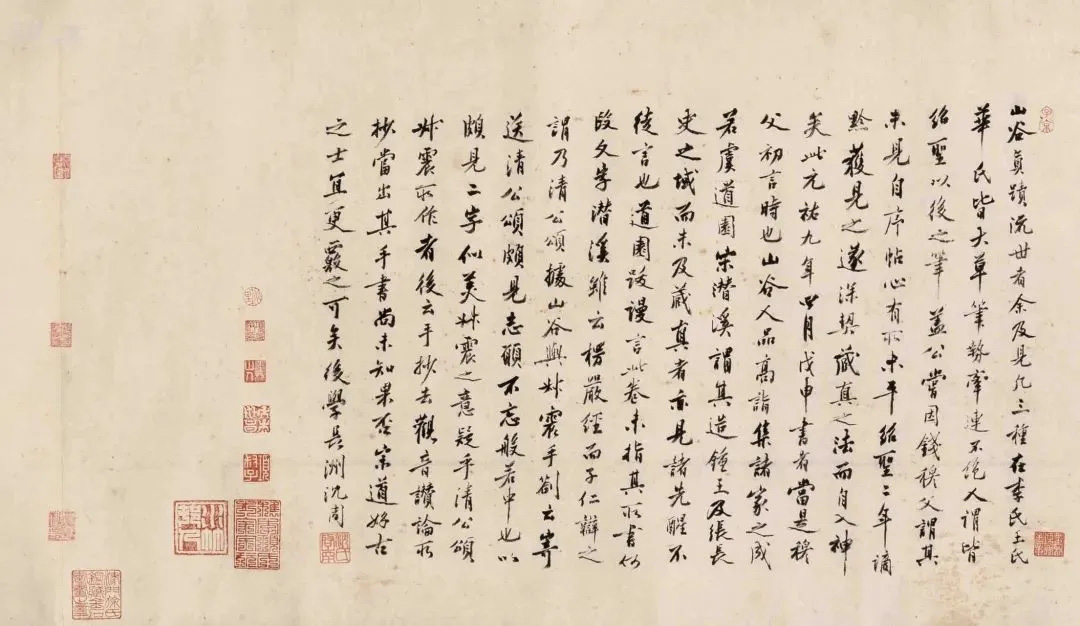 山谷真蹟流世者余及見凡三種在李氏王氏
華氏皆大草筆勢牽連不絕人謂皆
紹聖以後之筆蓋公嘗因錢穆父謂其
未見自序帖心有所未平紹聖二年謫
黔獲見之遂深契藏真之法而自入神
矣此元祐九年四月戊申書者當是穆
父初言時也山谷人品高詣集諸家之成
若虞道園宋潛溪謂其造鍾王及張長
史之域而未及藏真者亦見諸先醒不
徒言也道園跋謾言此卷未指其所書何
段文字潛溪雖云楞嚴經而子仁辯之
謂乃清公頌據山谷與無震手劄云寄
送清公頌頗見志願不忘般若中也以
頗見二字似美無震之意疑乎清公頌
無震所作者後云手抄去觀音讚論所
抄當出其手書尚未知果否宗道好古
之士宜更覈之可矣後學長洲沈周